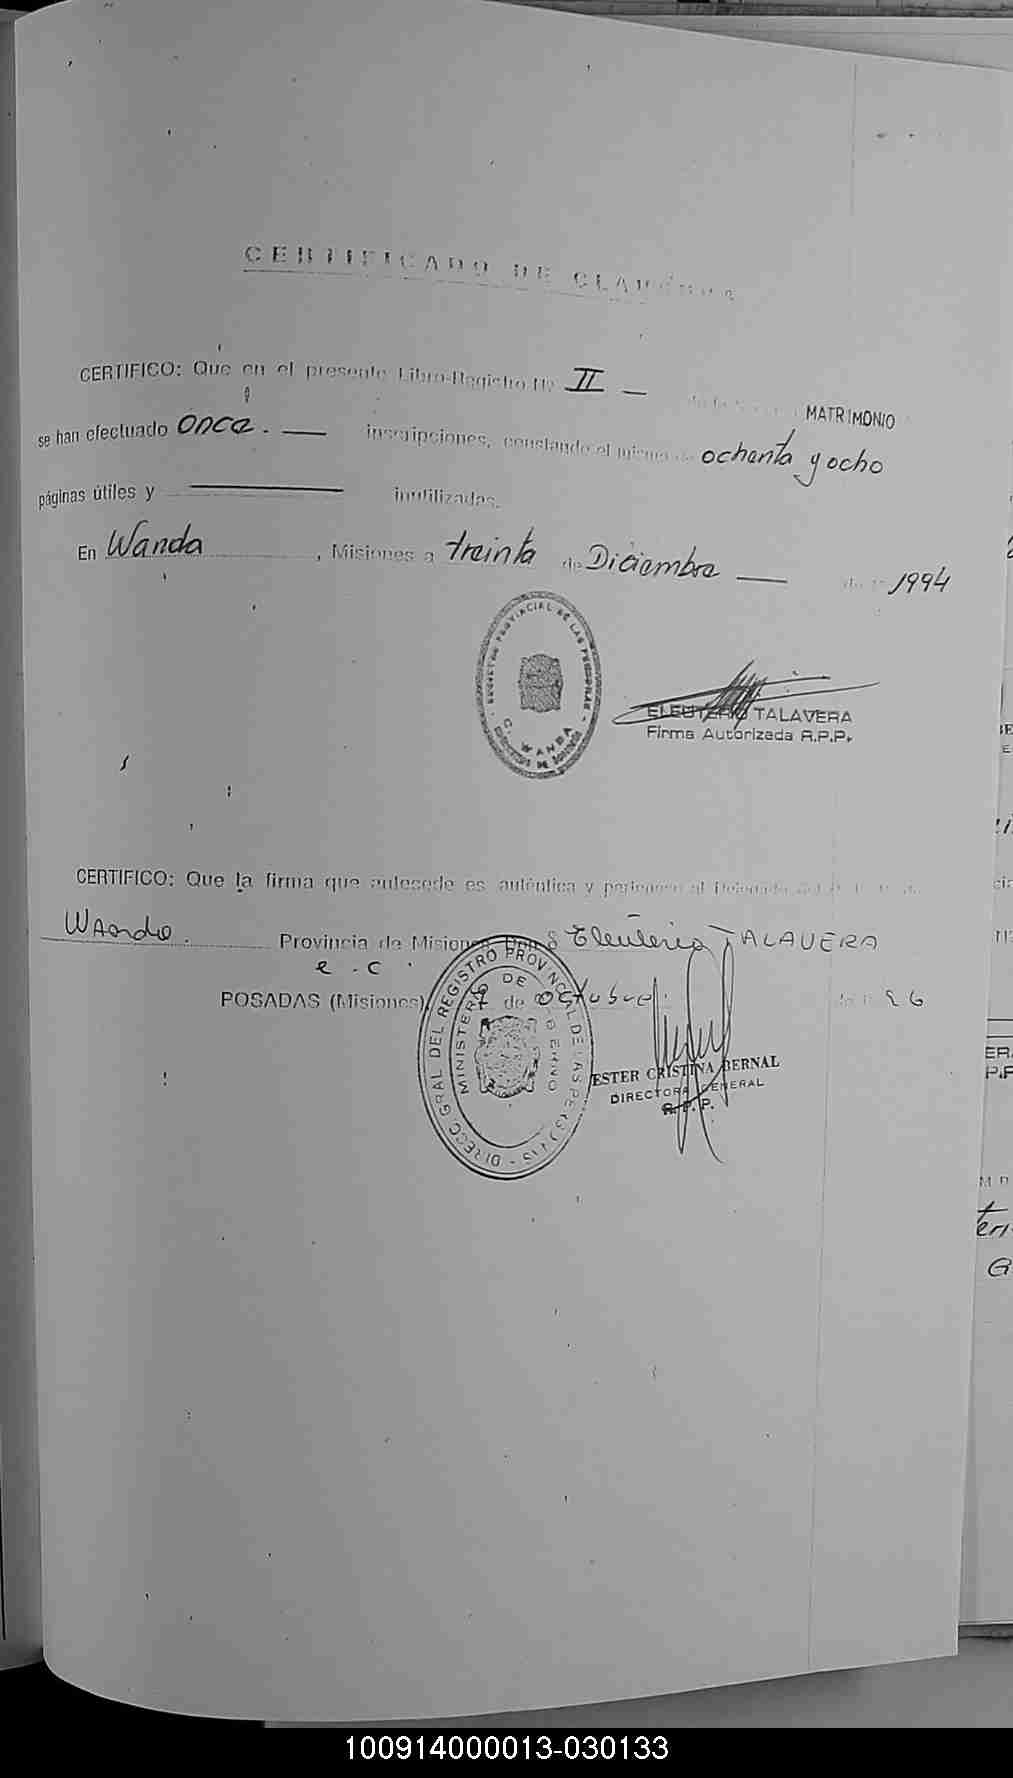 CERTIFICADO DE CLAUSURA
CERTIFICO: Que en el presente Libro-Registro Nº II — MATRIMONIO
se han efectuado once. — inscripciones, constando el mismo de ochenta y ocho
páginas útiles y — inutilizadas.
En Wanda, Misiones a treinta de Diciembre — de 1994
REGISTRO PROVINCIAL DE LAS PERSONAS
WANDA
ELEUTERIO TALAVERA
Firma Autorizada R.P.P.
CERTIFICO: Que la firma que antecede es auténtica y pertenece al Delegado
Wanda. Provincia de Misiones, Don Eleuterio TALAVERA
e.c.
POSADAS (Misiones), de octubre 96
DIREC. GRAL DEL REGISTRO PROVINCIAL DE LAS PERSONAS
MINISTERIO DE GOBIERNO
ESTER CRISTINA BERNAL
DIRECTORA GENERAL
R.P.P.
100914000013-030133